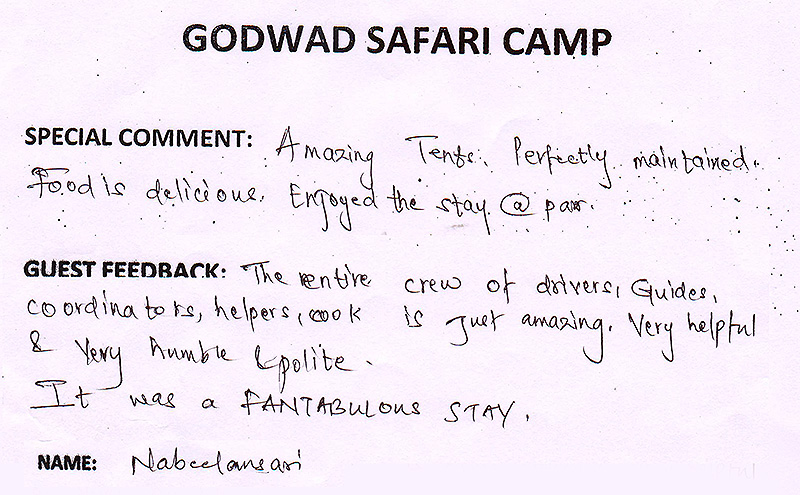 GODWAD SAFARI CAMP
SPECIAL COMMENT: Amazing Tents. Perfectly maintained.
Food is delicious. Enjoyed the stay @ par.
GUEST FEEDBACK: The entire crew of drivers, Guides,
coordinators, helpers, cook is just amazing. Very helpful
& Very humble & polite.
It was a FANTABULOUS STAY.
NAME: Nabeelansari